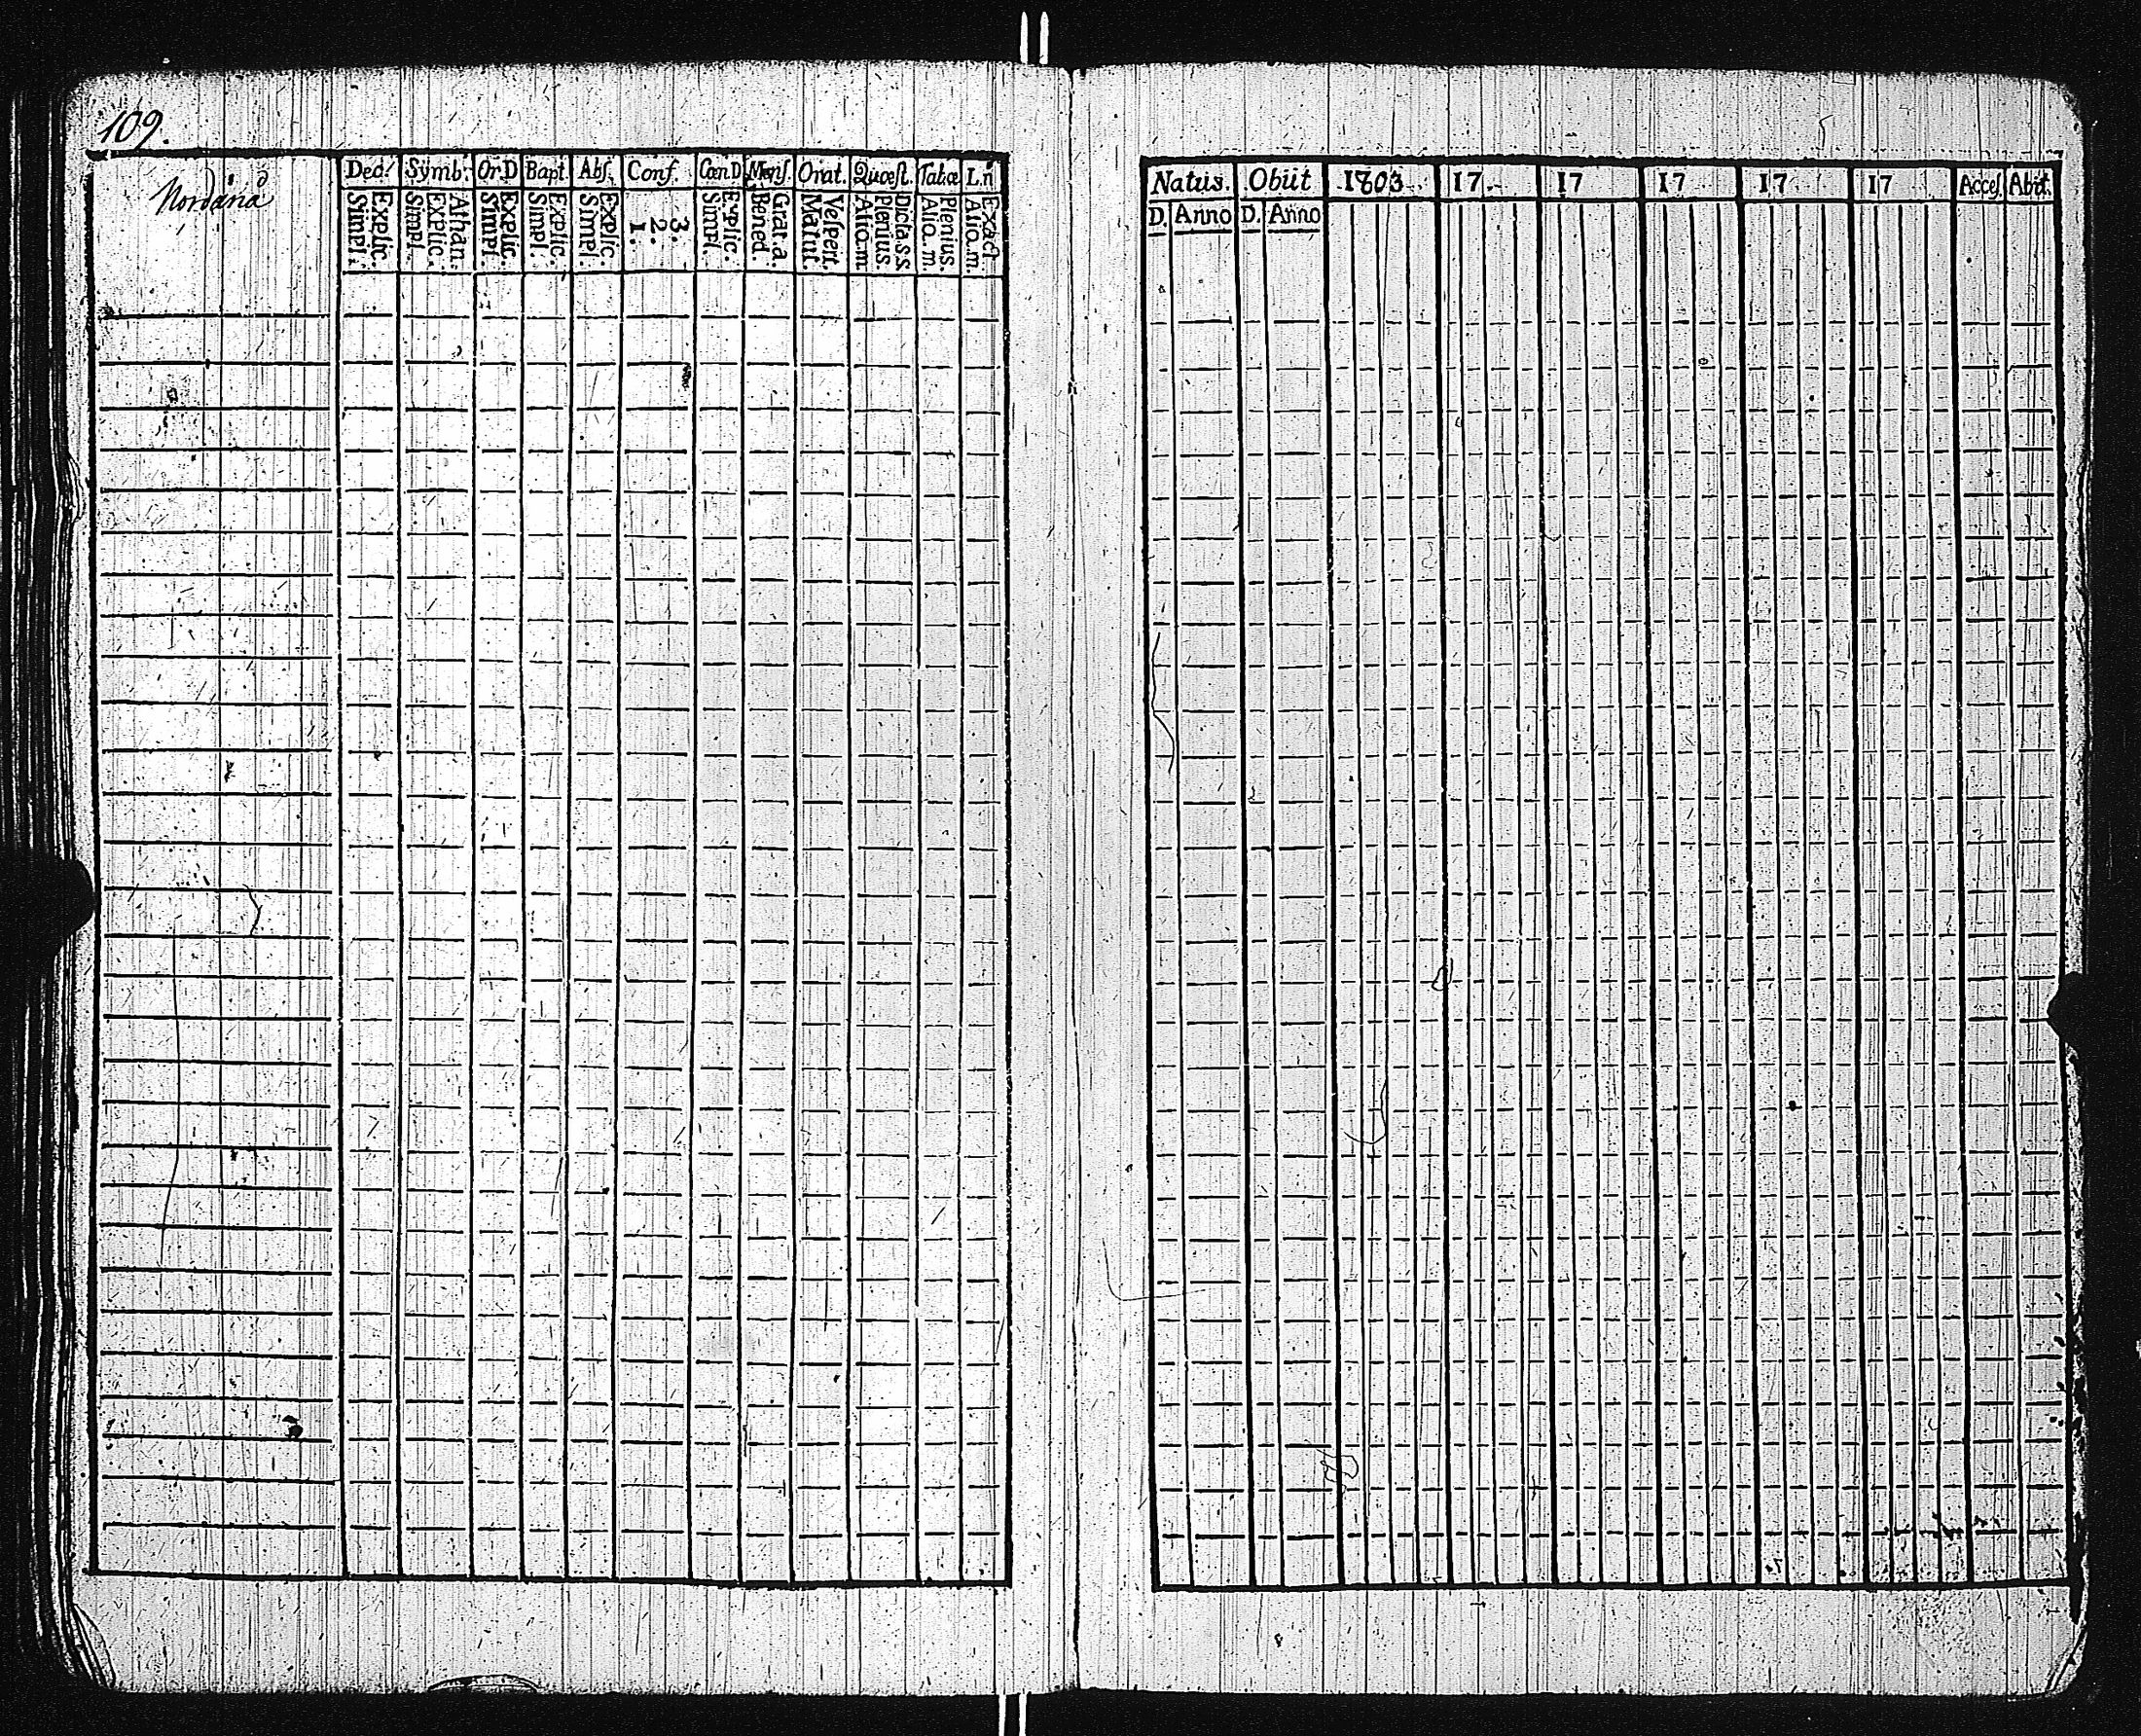 109.
Nordanå
Dec. Symb. Or. D Bapt. Abſ. Conf. Cœn D Menſ. Orat. Quœſt. Tabœ L. n
Explic. Simpl. Athan. Explic. Simpl. Explic. Simpl. Explic. Simpl. Explic. Simpl. 3. 2. 1. Explic. Simpl. Grat. a. Bened. Veſpert. Matut. Dicta. s. s. Plenius. Alio. m. Plenius. Alio. m. Exact Alio. m.
Natus. Obiit 1803 17 17 17 17 17 Acceſ. Abit.
D. Anno D. Anno